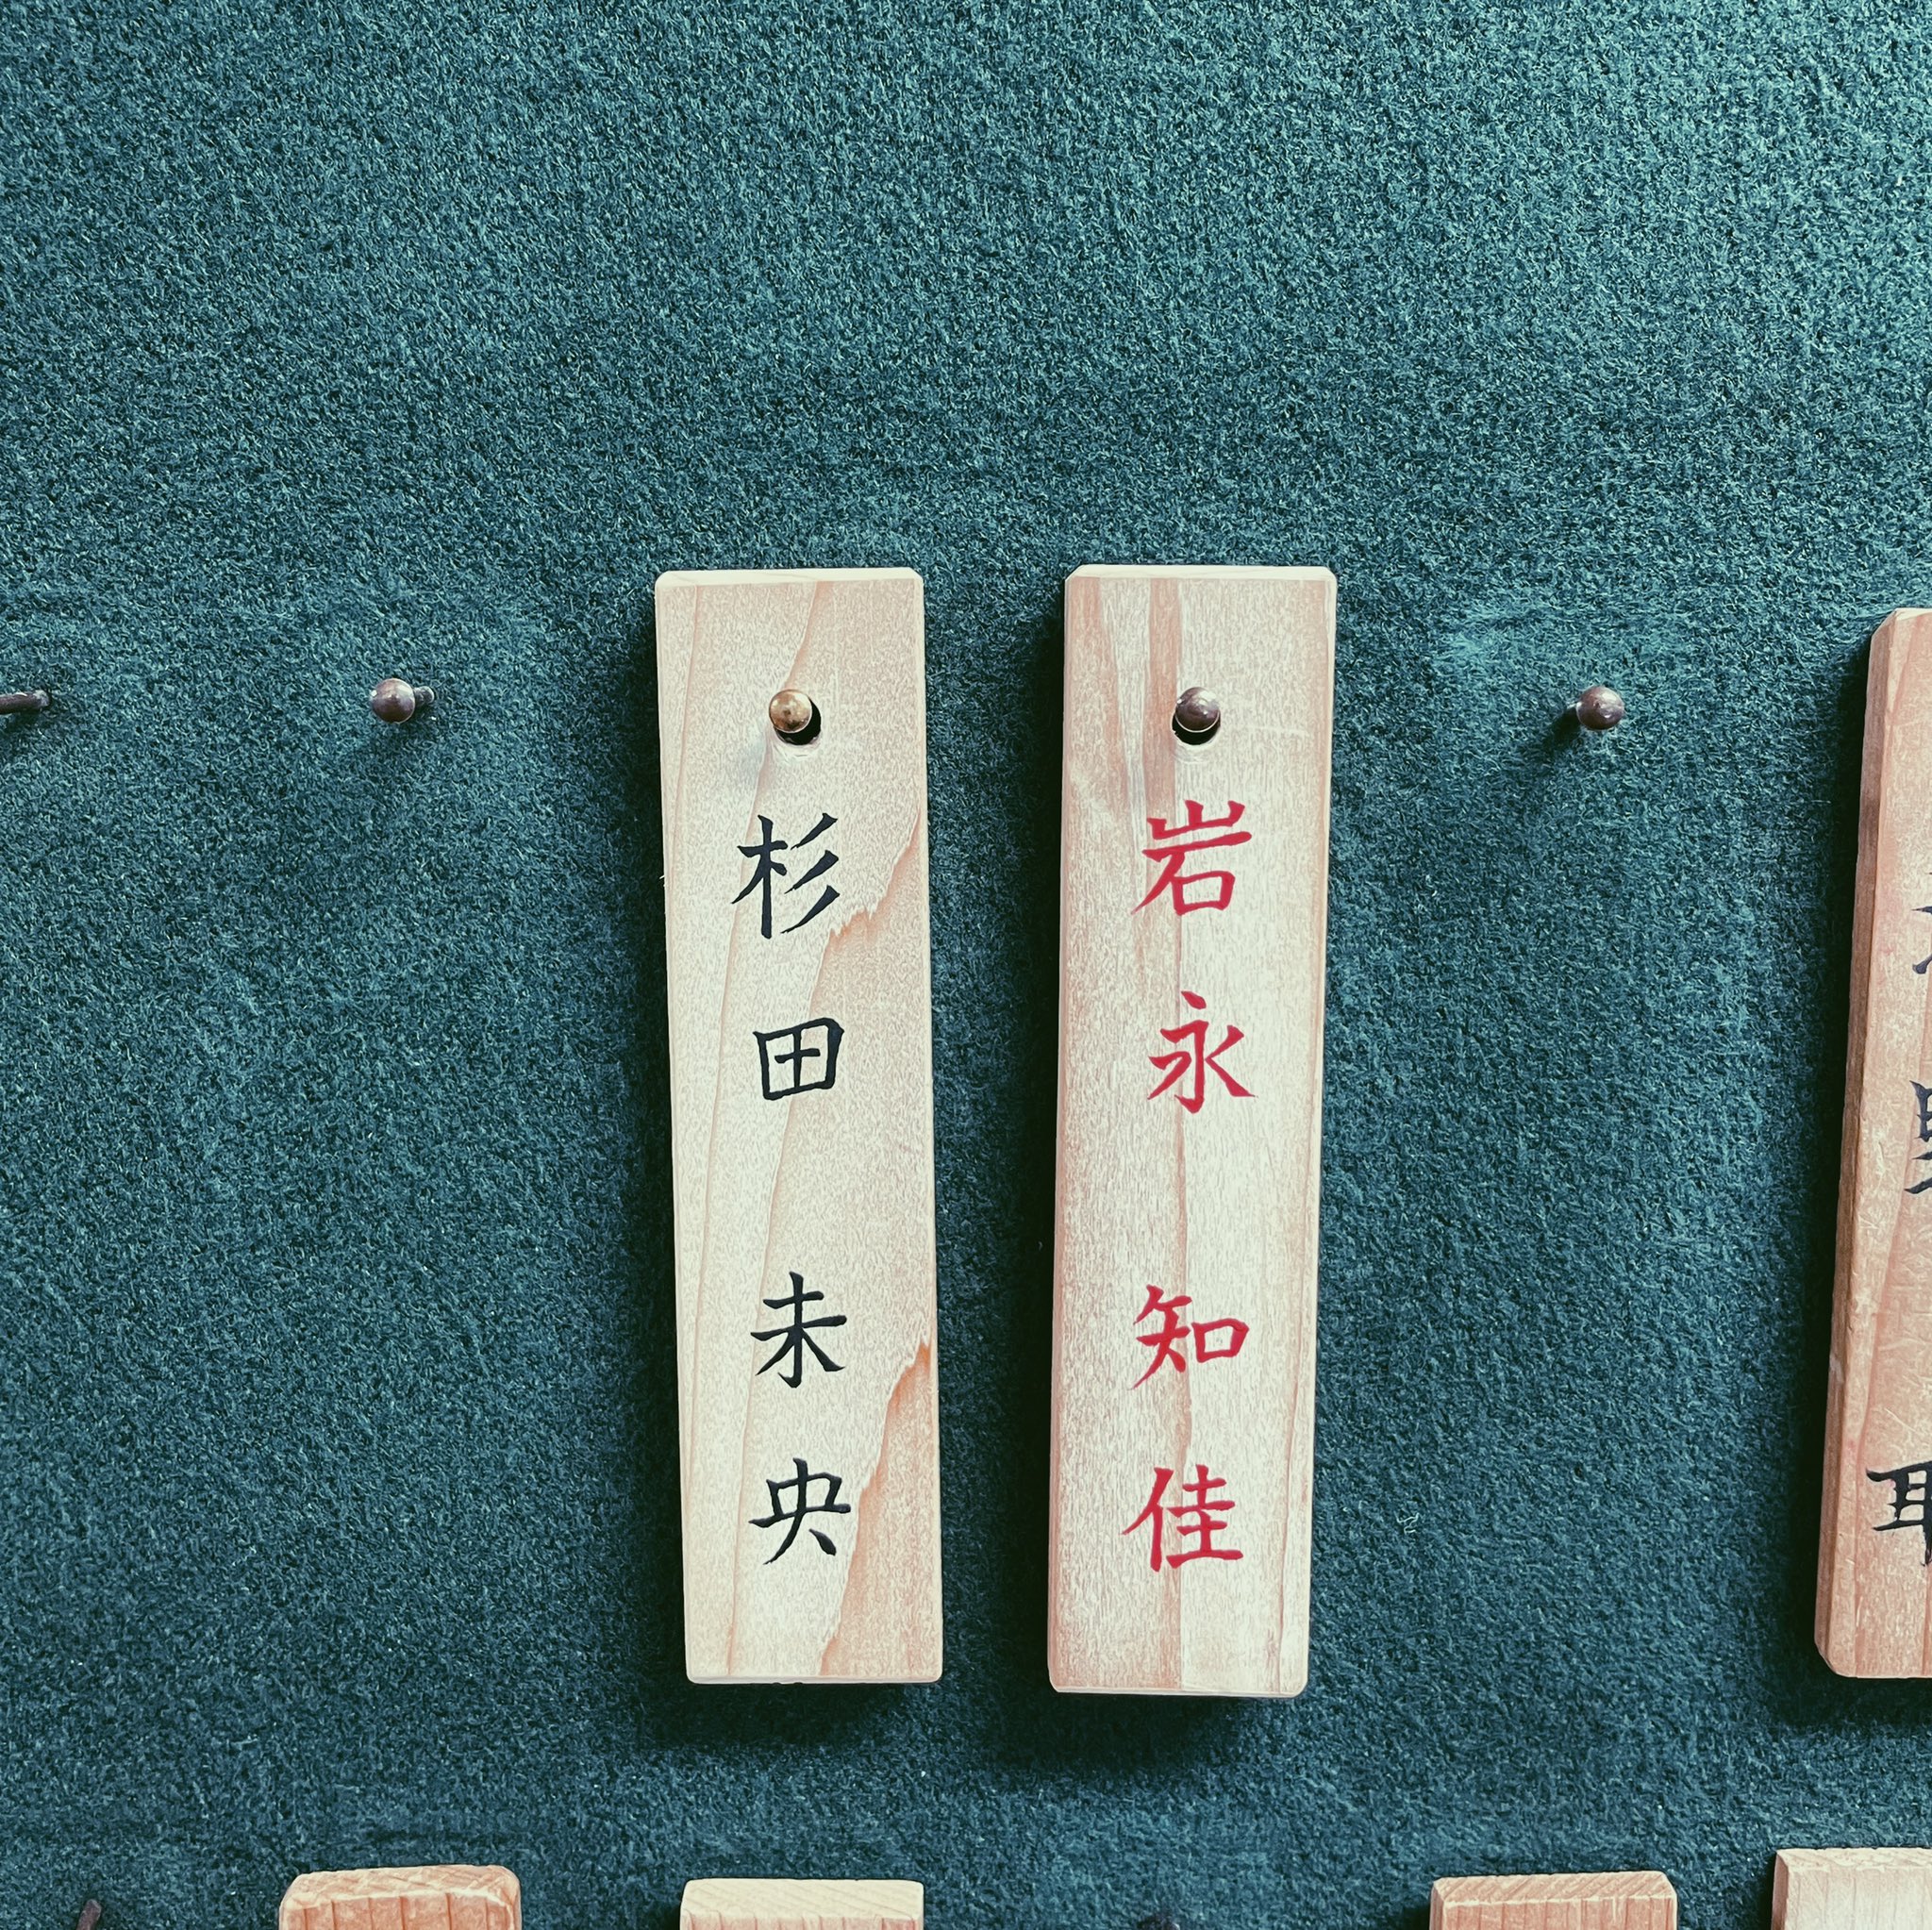 岩永知佳
杉田未央